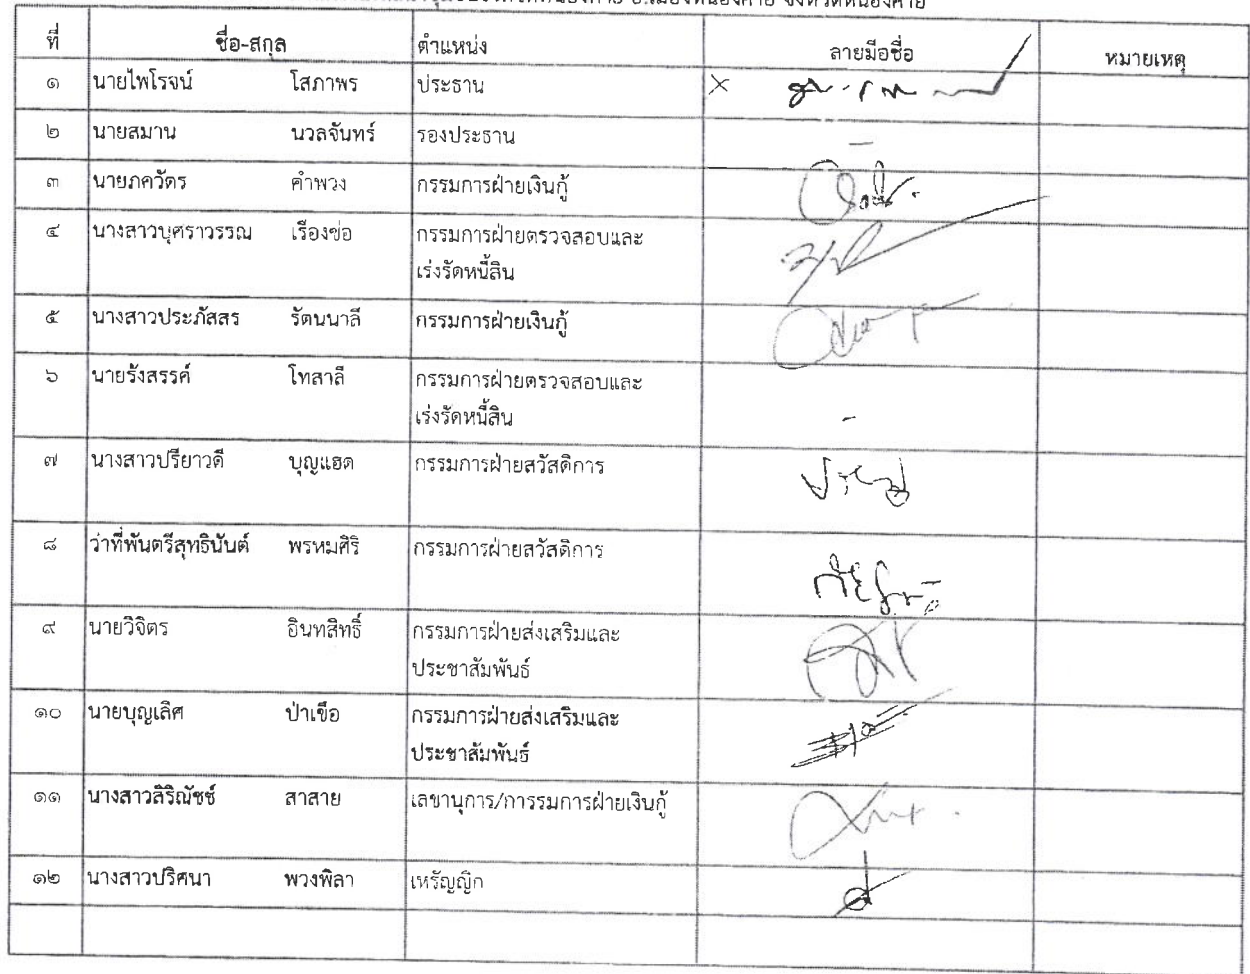 ที่ ชื่อ-สกุล ตำแหน่ง ลายมือชื่อ หมายเหตุ
๑ นายไพโรจน์ โสภาพร ประธาน ×
๒ นายสมาน นวลจันทร์ รองประธาน –
๓ นายภควัตร คำพวง กรรมการฝ่ายเงินกู้
๔ นางสาวบุศราวรรณ เรืองข่อ กรรมการฝ่ายตรวจสอบและ
เร่งรัดหนี้สิน
๕ นางสาวประภัสสร รัตนนาลี กรรมการฝ่ายเงินกู้
๖ นายรังสรรค์ โทสาลี กรรมการฝ่ายตรวจสอบและ
เร่งรัดหนี้สิน -
๗ นางสาวปรียาวดี บุญแฮด กรรมการฝ่ายสวัสดิการ
๘ ว่าที่พันตรีสุทธินันต์ พรหมศิริ กรรมการฝ่ายสวัสดิการ
๙ นายวิจิตร อินทสิทธิ์ กรรมการฝ่ายส่งเสริมและ
ประชาสัมพันธ์
๑๐ นายบุญเลิศ ป่าเขือ กรรมการฝ่ายส่งเสริมและ
ประชาสัมพันธ์
๑๑ นางสาวสิริณัชช์ สาสาย เลขานุการ/การรมการฝ่ายเงินกู้
๑๒ นางสาวปริศนา พวงพิลา เหรัญญิก